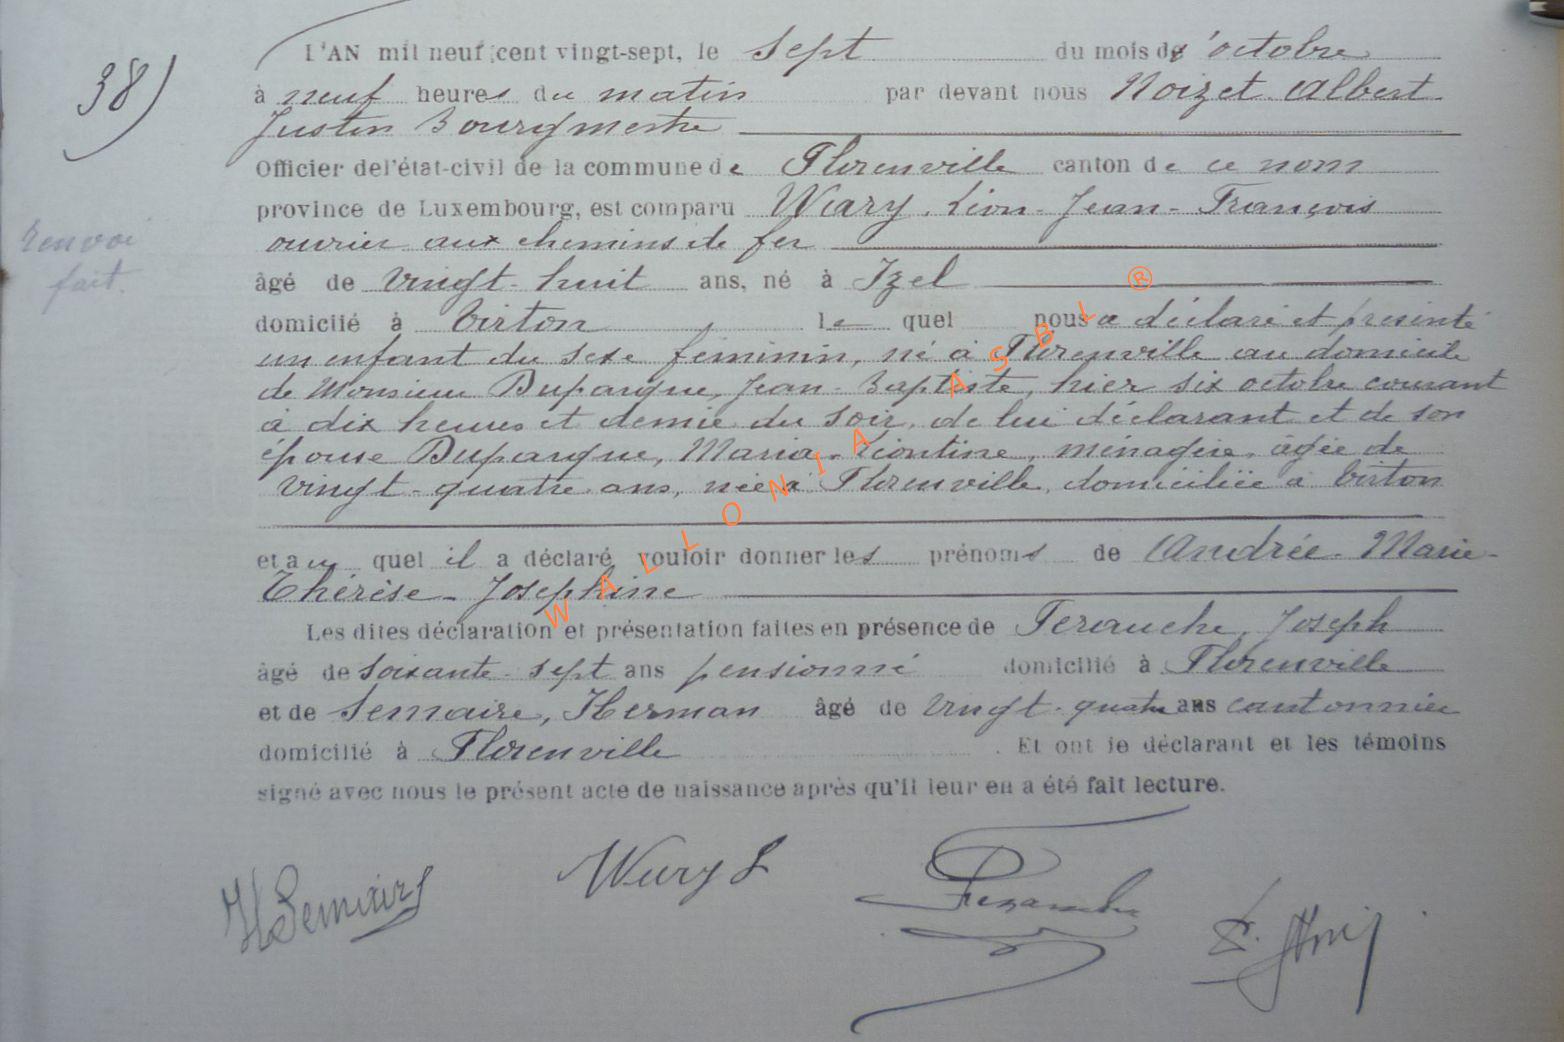 38)
L'AN mil neuf cent vingt-sept, le sept du mois d'octobre
à neuf heures du matin par devant nous Noizet Albert
Justin Bourgmestre
Officier de l'état-civil de la commune de Florenville canton de ce nom
province de Luxembourg, est comparu Wary, Léon-Jean-François
ouvrier aux chemins de fer
Renvoi
fait.
âgé de vingt-huit ans, né à Izel
domicilié à Virton, lequel nous a déclaré et présenté
un enfant du sexe féminin, né à Florenville au domicile
de Monsieur Duparque, Jean-Baptiste, hier six octobre courant
à dix heures et demie du soir, de lui déclarant et de son
épouse Duparque, Maria-Léontine, ménagère, âgée de
vingt-quatre ans, née à Florenville, domiciliée à Virton
et au quel il a déclaré vouloir donner les prénoms de Andrée-Marie-
Thérèse-Josephine
Les dites déclaration et présentation faites en présence de Joseph
âgé de soixante-sept ans pensionné domicilié à Florenville
et de Semaire, Herman âgé de vingt-quatre ans cantonnier
domicilié à Florenville. Et ont le déclarant et les témoins
signé avec nous le présent acte de naissance après qu'il leur en a été fait lecture.
WALLONIA ASBL ®
H Semaire
Wary L